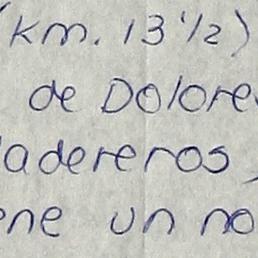 (km. 13 1/2)
de Dolore
adereros,
ene un no